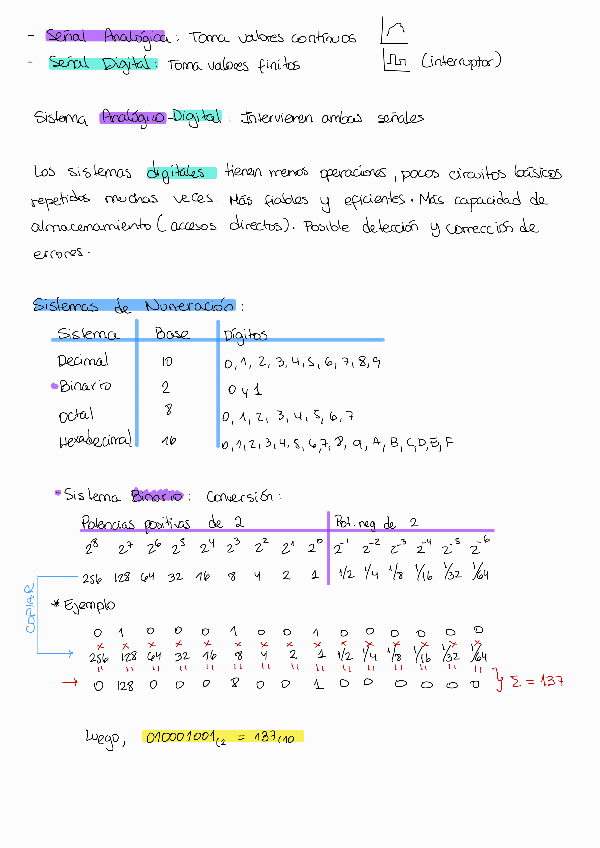 - Señal Analógica: Toma valores contínuos
- Señal Digital: Toma valores finitos (interruptor)
Sistema Analógico-Digital: Intervienen ambas señales
Los sistemas digitales tienen menos operaciones, pocos circuitos básicos
repetidos muchas veces. Más fiables y eficientes. Más capacidad de
almacenamiento (accesos directos). Posible detección y corrección de
errores.
Sistemas de Numeración:
Sistema Base Dígitos
Decimal 10 0, 1, 2, 3, 4, 5, 6, 7, 8, 9
Binario 2 0 y 1
Octal 8 0, 1, 2, 3, 4, 5, 6, 7
Hexadecimal 16 0, 1, 2, 3, 4, 5, 6, 7, 8, 9, A, B, C, D, E, F
Sistema Binario: Conversión:
Potencias positivas de 2 Pot. neg de 2
2⁸ 2⁷ 2⁶ 2⁵ 2⁴ 2³ 2² 2¹ 2⁰ 2⁻¹ 2⁻² 2⁻³ 2⁻⁴ 2⁻⁵ 2⁻⁶
256 128 64 32 16 8 4 2 1 1/2 1/4 1/8 1/16 1/32 1/64
COPIAR
* Ejemplo
0 1 0 0 0 1 0 0 1 0 0 0 0 0 0
x x x x x x x x x x x x x x x
256 128 64 32 16 8 4 2 1 1/2 1/4 1/8 1/16 1/32 1/64
= = = = = = = = = = = = = = =
→ 0 128 0 0 0 8 0 0 1 0 0 0 0 0 0 } Σ = 137
Luego, 010001001(2 = 137(10